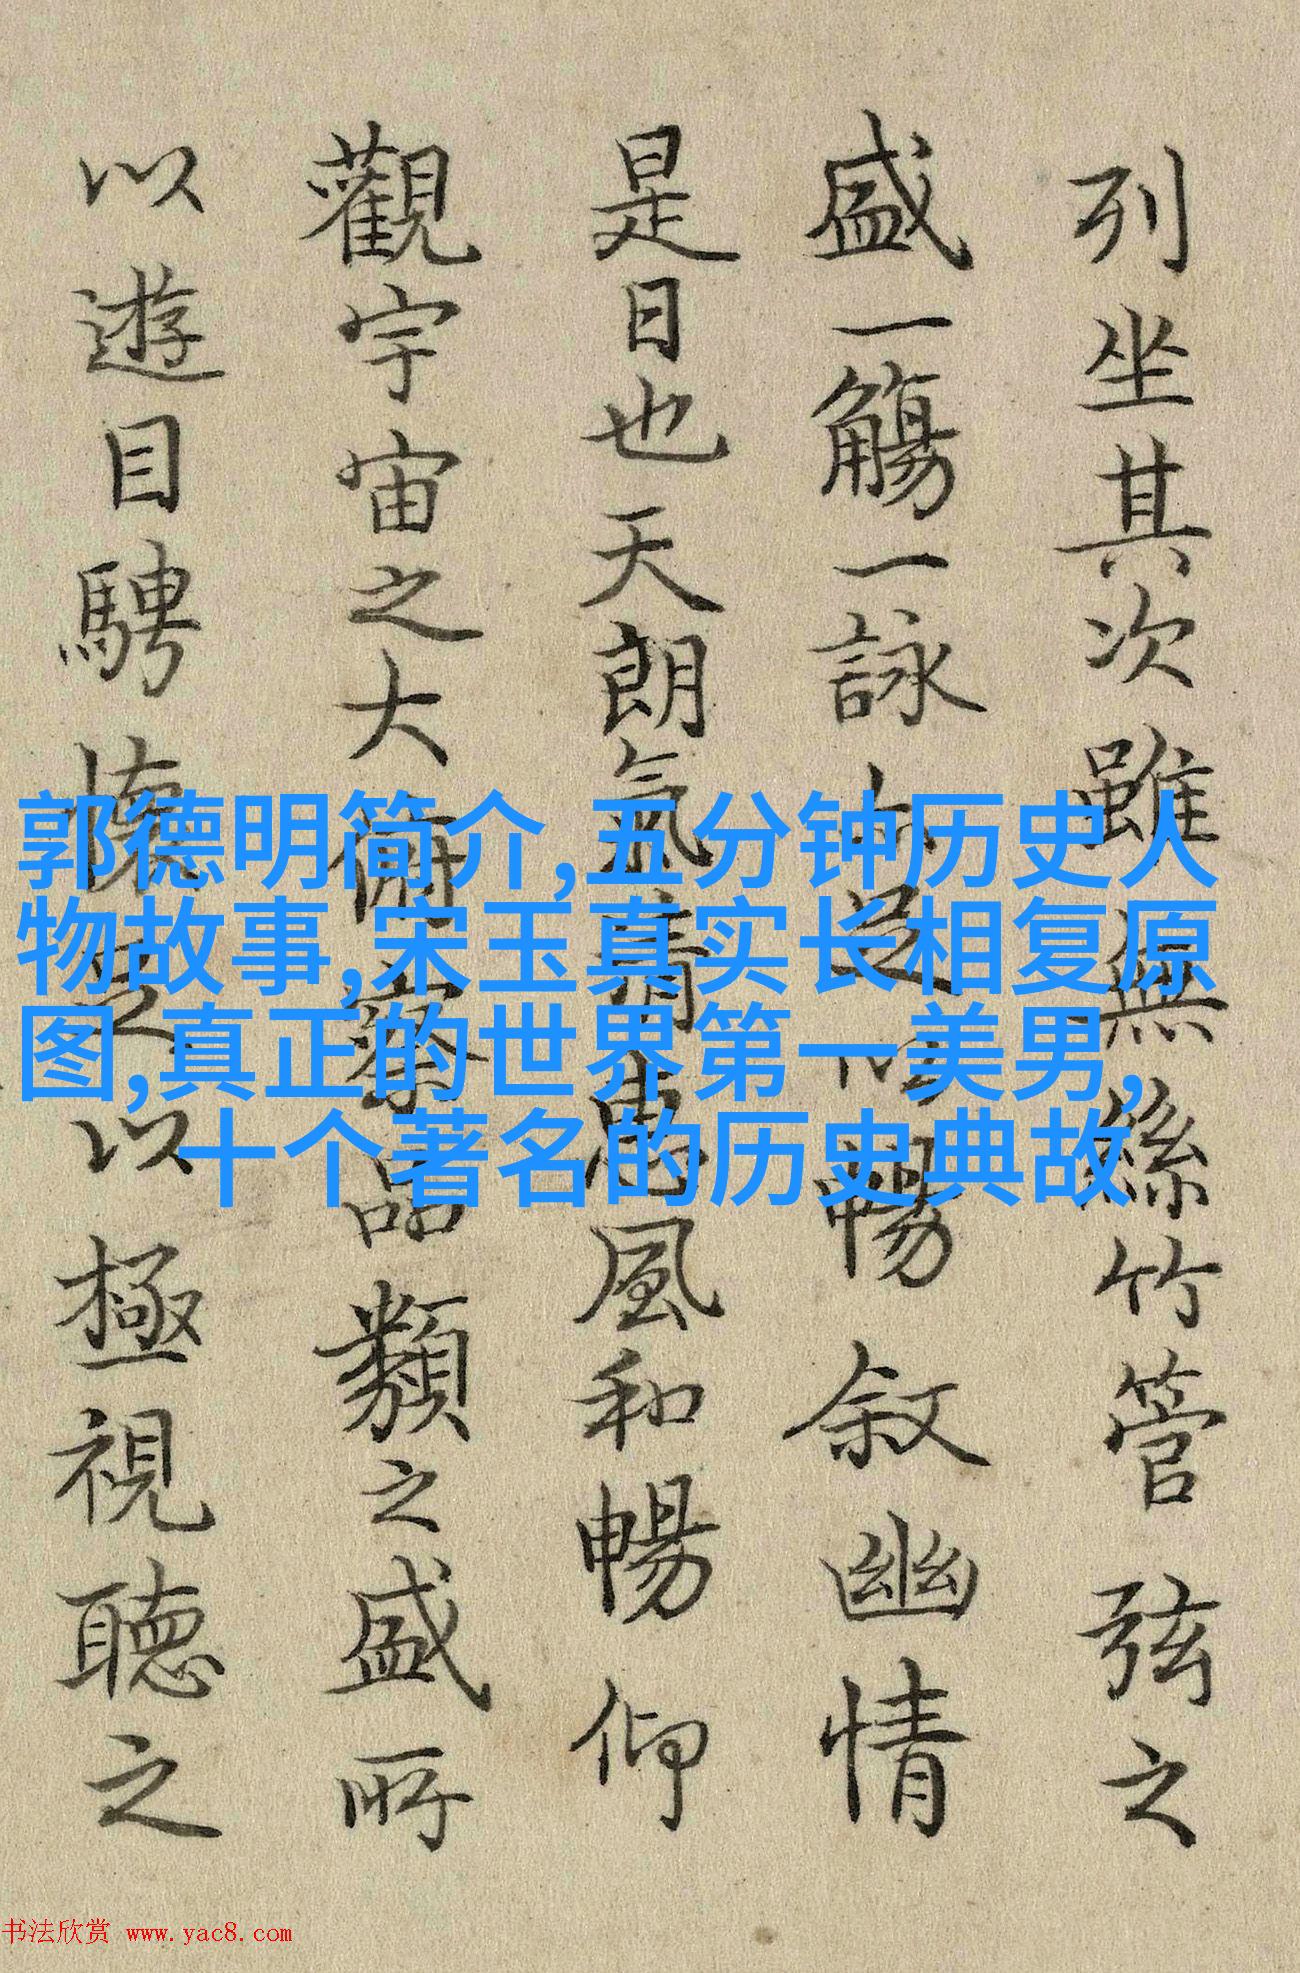 列坐其次雖無絲竹管弦之
盛一觴一詠亦足以暢叙幽情
是日也天朗氣清惠風和暢仰
觀宇宙之大俯察品類之盛所
以遊目騁懷足以極視聽之
郭德明简介,五分钟历史人
物故事,宋玉真实长相复原
图,真正的世界第一美男,
十个著名的历史典故
书法欣赏 www.yac8.com